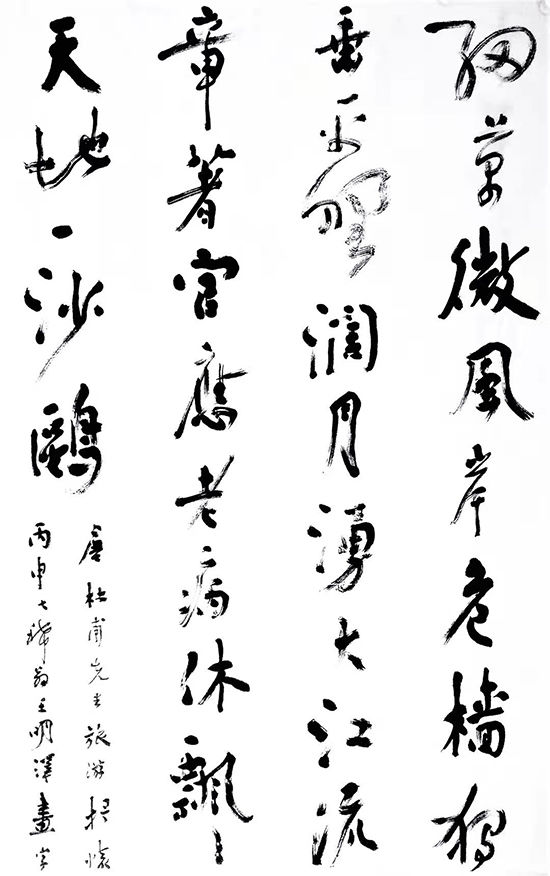 細草微風岸危檣獨
垂平野濶月湧大江流
章著官應老病休飄々
天地一沙鷗
唐杜甫先生旅游抒懷
丙申七稀翁王明澤畫字